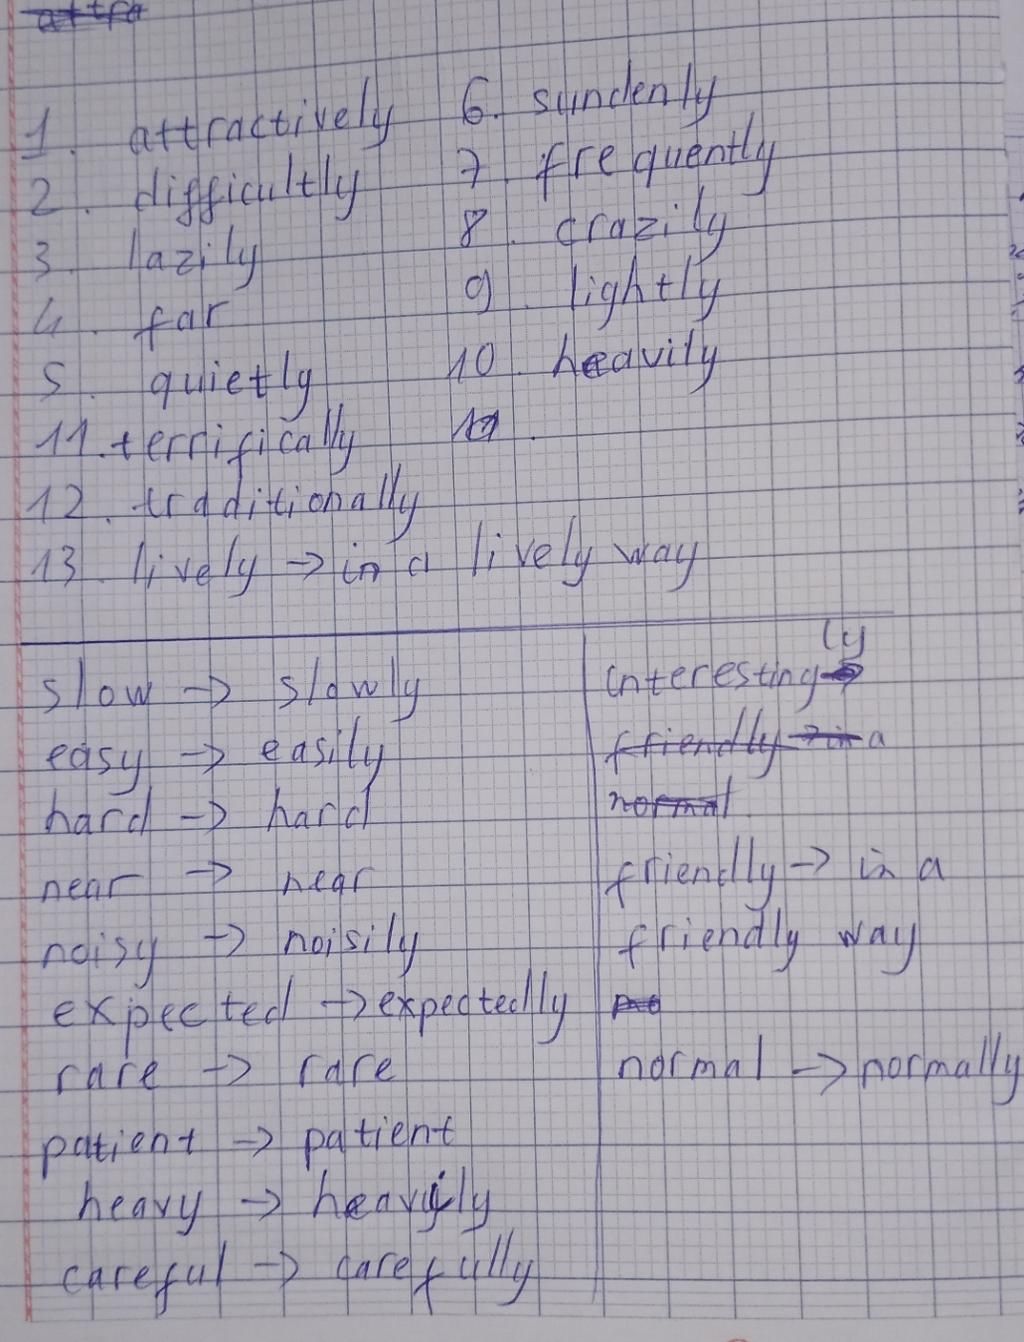 attra
1. attractively
2. difficultly
3. lazily
4. far
5. quietly
6. sundenly
7. frequently
8. crazily
9. lightly
10. heavily
11. terrifically
12. traditionally
13. lively → in a lively way
slow → slowly
easy → easily
hard → hard
near → near
noisy → noisily
expected → expectedly
rare → rare
patient → patient
heavy → heavily
careful → carefully
interestingly
friendly → in a
normal
friendly → in a
friendly way
normal → normally